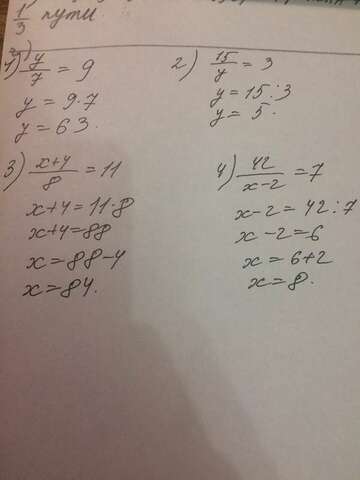 1/3 пути.
1) y/7 = 9
y = 9·7
y = 63.
2) 15/y = 3
y = 15:3
y = 5.
3) x+4/8 = 11
x+4 = 11·8
x+4 = 88
x = 88-4
x = 84.
4) 42/x-2 = 7
x-2 = 42:7
x-2 = 6
x = 6+2
x = 8.